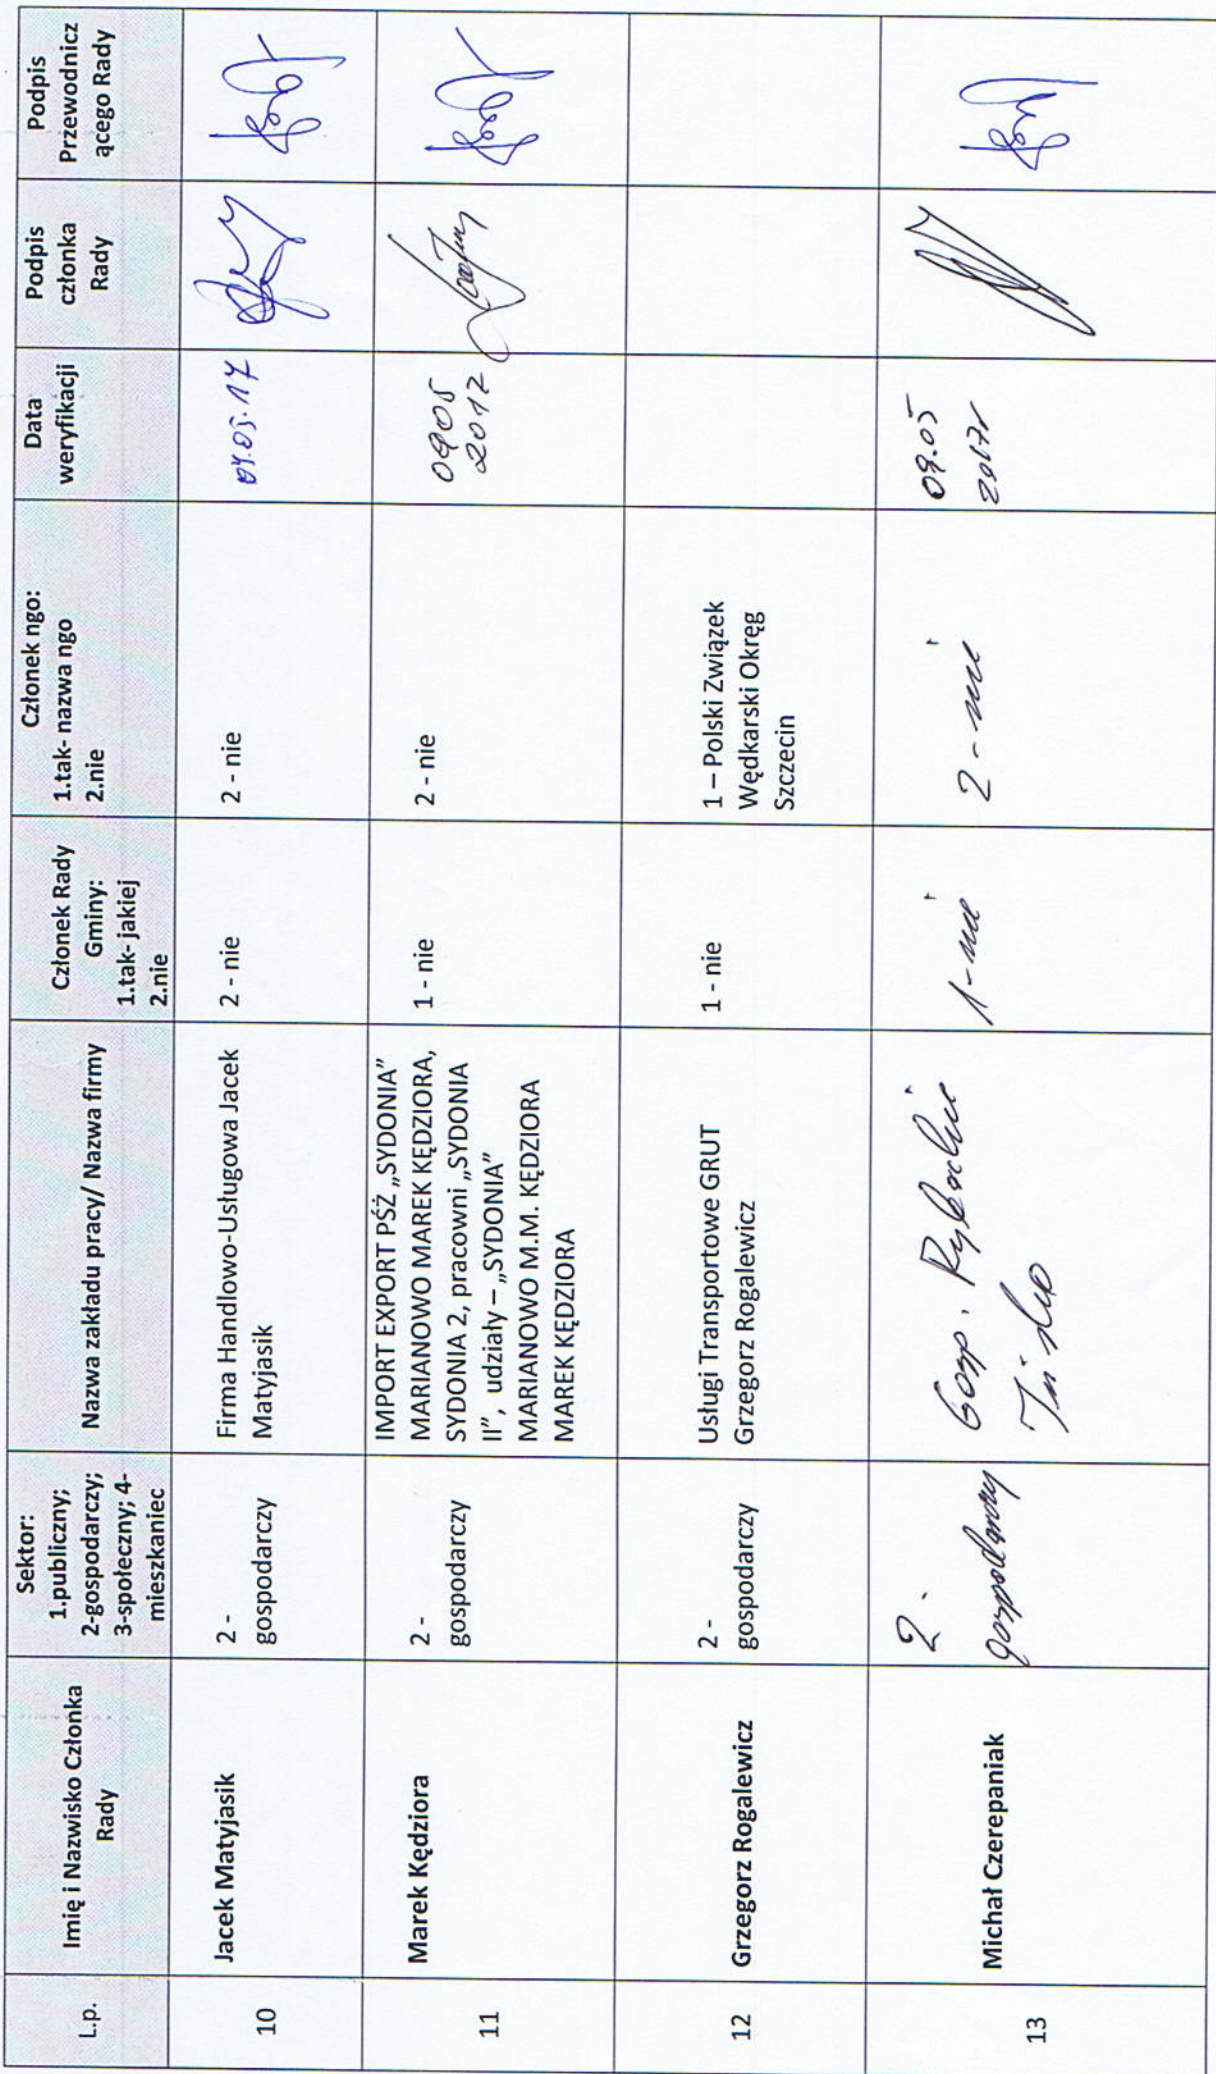 L.p.
Imię i Nazwisko Członka
Rady
Sektor:
1.publiczny;
2-gospodarczy;
3-społeczny; 4-
mieszkaniec
Nazwa zakładu pracy/ Nazwa firmy
Członek Rady
Gminy:
1.tak- jakiej
2.nie
Członek ngo:
1.tak- nazwa ngo
2.nie
Data
weryfikacji
Podpis
członka
Rady
Podpis
Przewodnicz
ącego Rady
10
Jacek Matyjasik
2 -
gospodarczy
Firma Handlowo-Usługowa Jacek
Matyjasik
2 - nie
2 - nie
11
Marek Kędziora
2 -
gospodarczy
IMPORT EXPORT PŚŻ „SYDONIA”
MARIANOWO MAREK KĘDZIORA,
SYDONIA 2, pracowni „SYDONIA
II”, udziały – „SYDONIA”
MARIANOWO M.M. KĘDZIORA
MAREK KĘDZIORA
1 - nie
2 - nie
12
Grzegorz Rogalewicz
2 -
gospodarczy
Usługi Transportowe GRUT
Grzegorz Rogalewicz
1 - nie
1 – Polski Związek
Wędkarski Okręg
Szczecin
13
Michał Czerepaniak
2 -
gospodarczy
Gosp. Rybackie
Ińsko
1 - nie
2 - nie
09.05
2017r